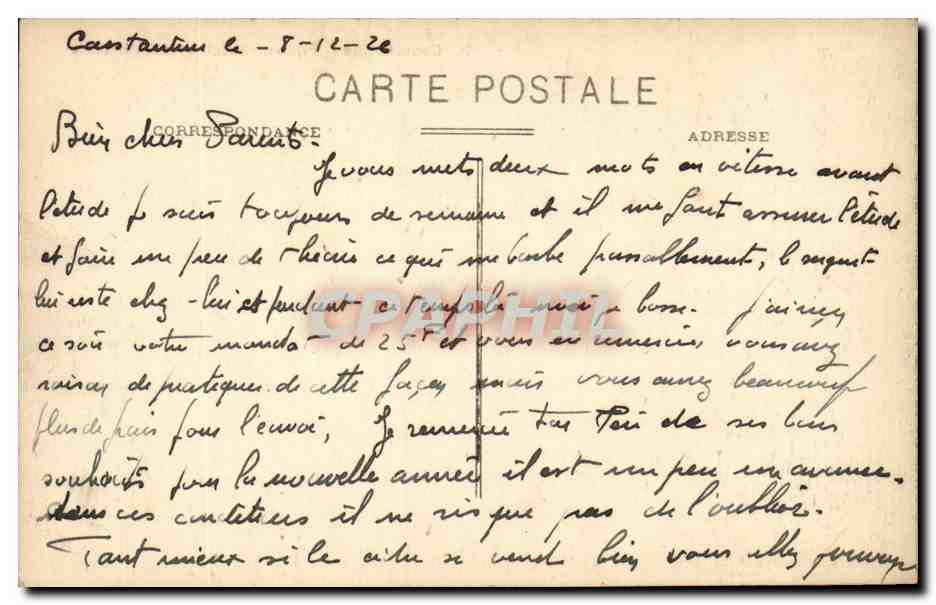 Constantine le - 8-12-26
CARTE POSTALE
CORRESPONDANCE
ADRESSE
Bien chers Parents -
Je vous mets deux mots en vitesse avant
l'étude je suis toujours de semaine et il me faut assurer l'étude
et faire un peu de théorie ce qui me barbe passablement, le sergent
lui reste chez-lui et pendant ce temps là moi je bosse. J'ai reçu
ce soir votre mandat de 25f et vous en remercie, vous avez
raison de pratiquer de cette façon mais vous aurez beaucoup
plus de frais pour l'envoi, Je remercie de ses bons
souhaits pour la nouvelle année il est un peu en avance.
dans ces conditions il ne risque pas de l'oublier.
Tant mieux si le cidre se vend bien vous
CPAPHIL